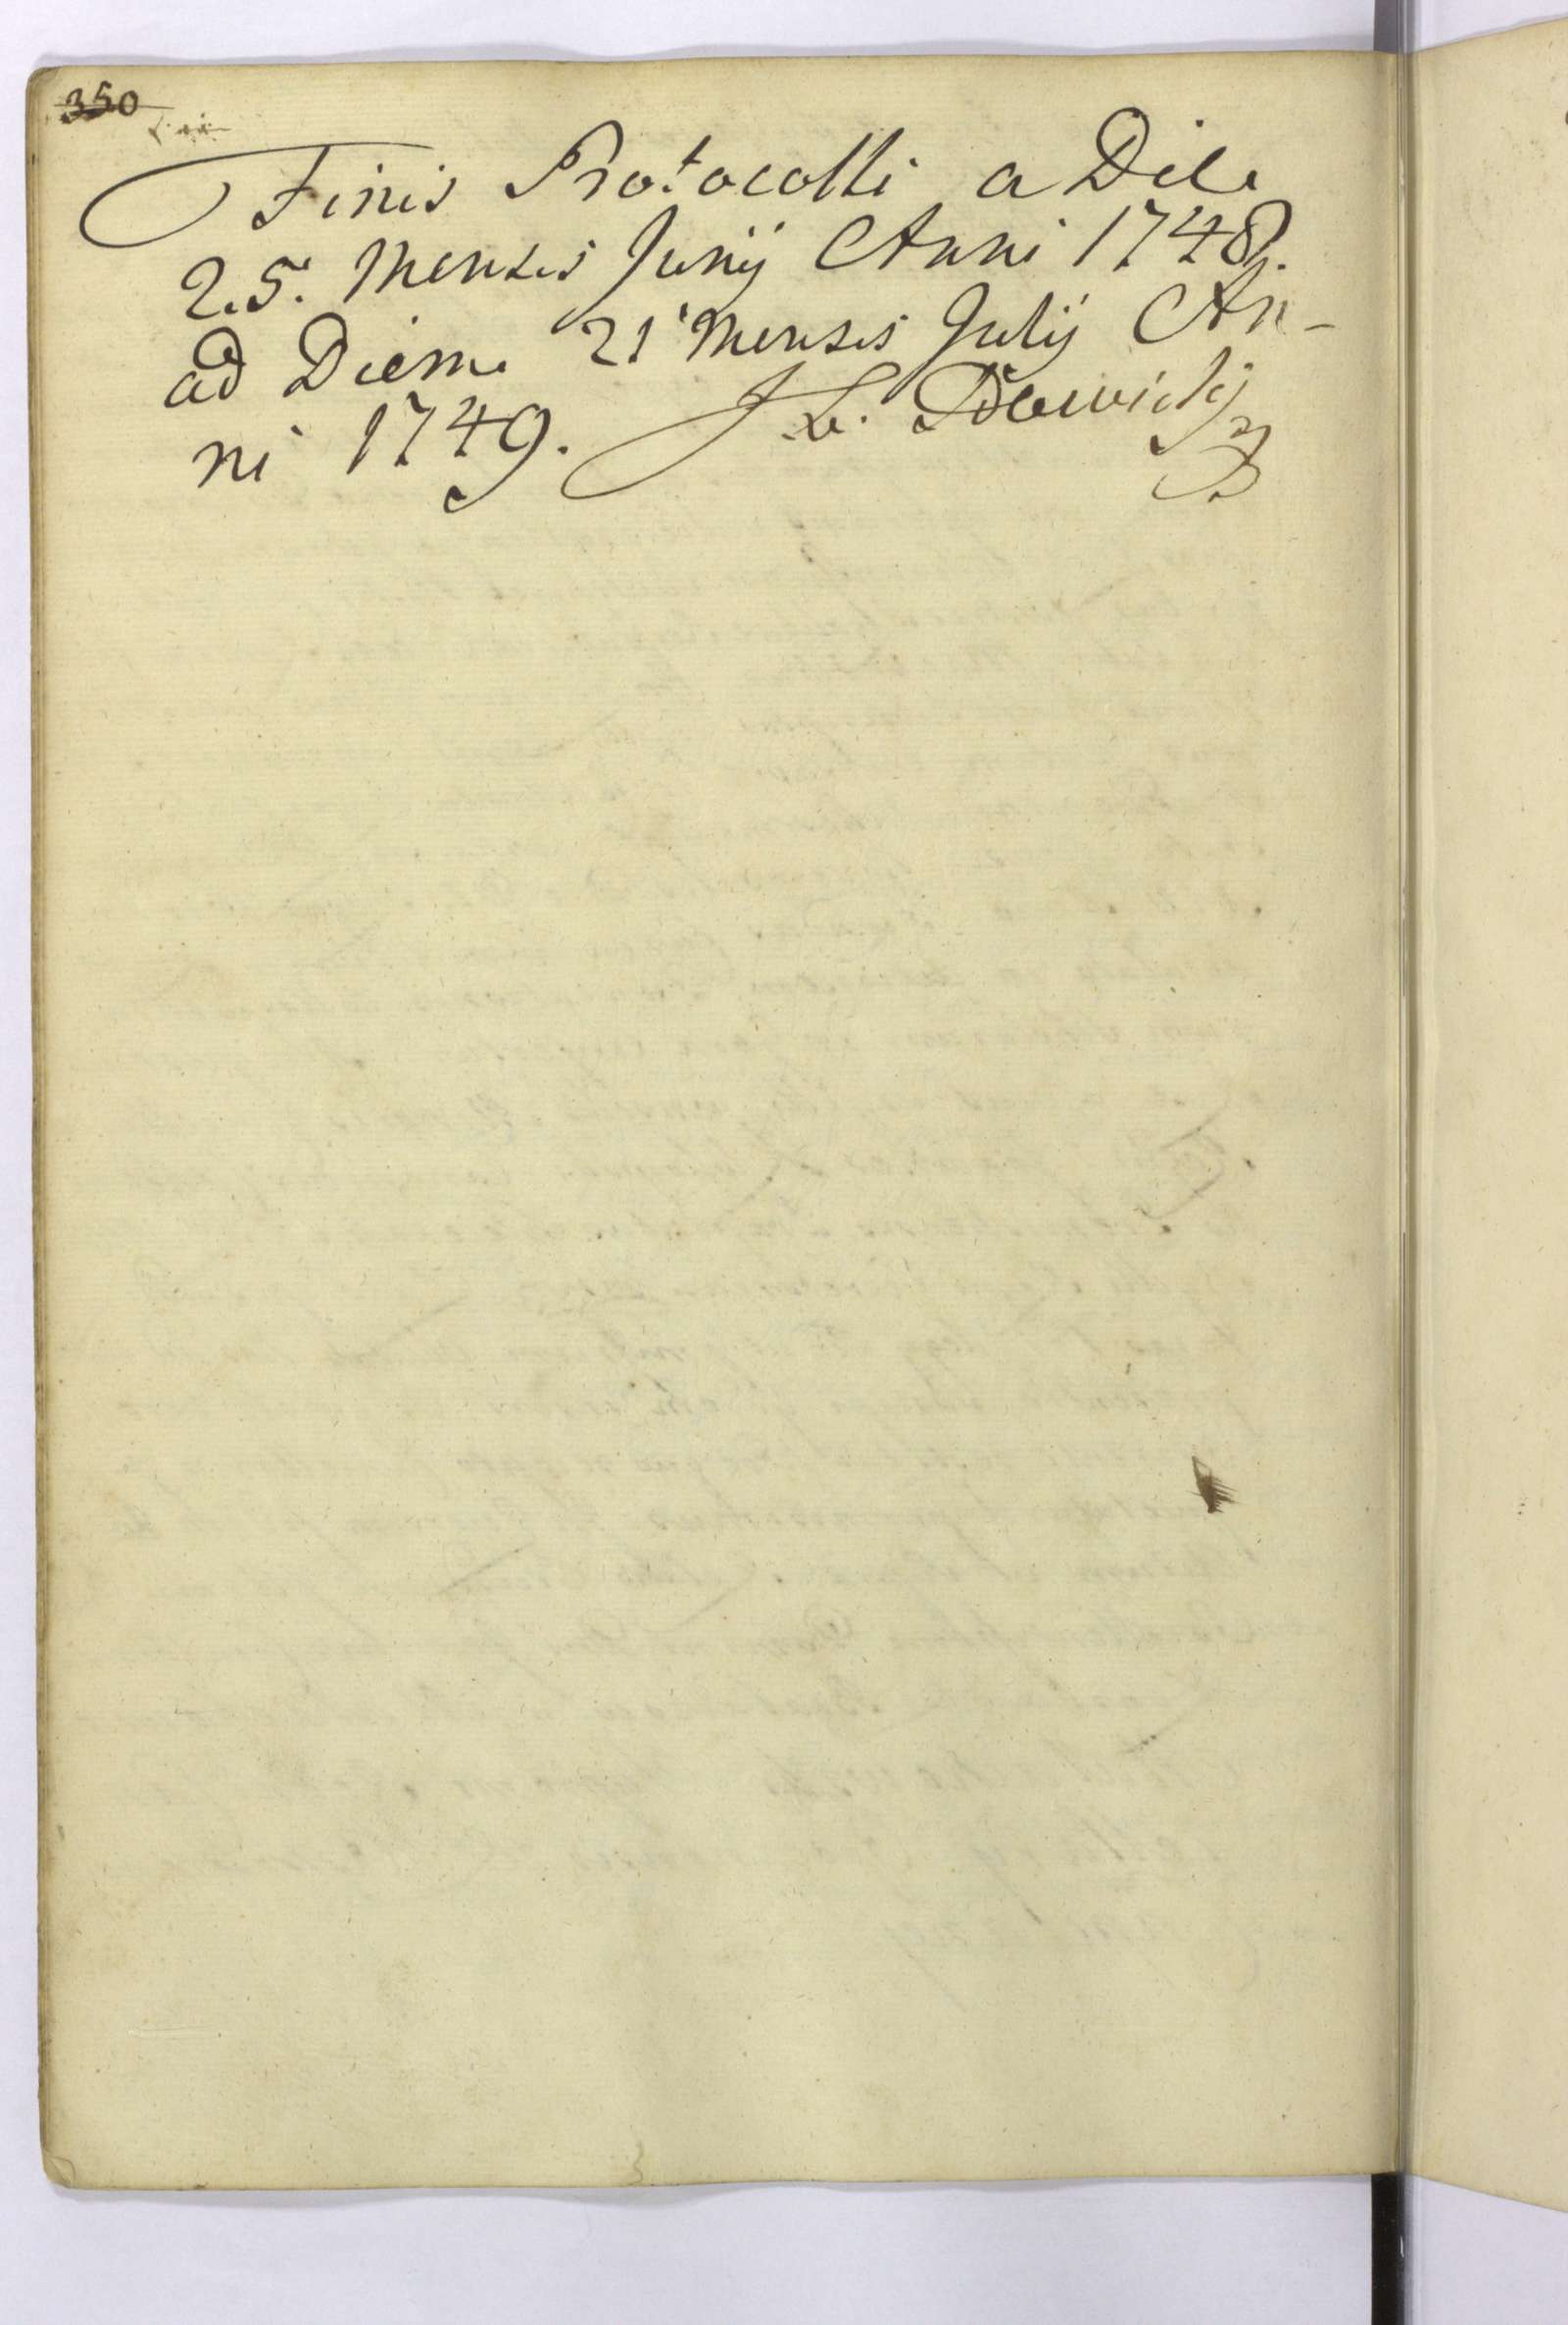 350
Finis Protocolli a Die
25. Mensis Junij Anni 1748.
ad Diem 21 Mensis Julij An-
ni 1749. L.